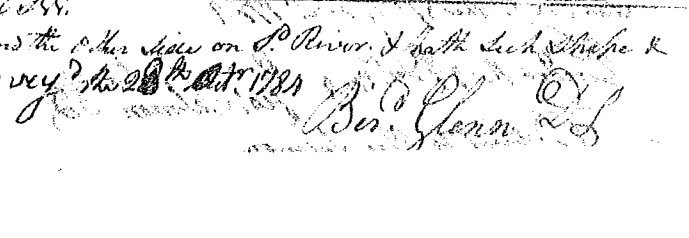 the other side on Sd. River. & hath such shape &
veyd. the 28th Octr. 1784
Bird. Glenn DS